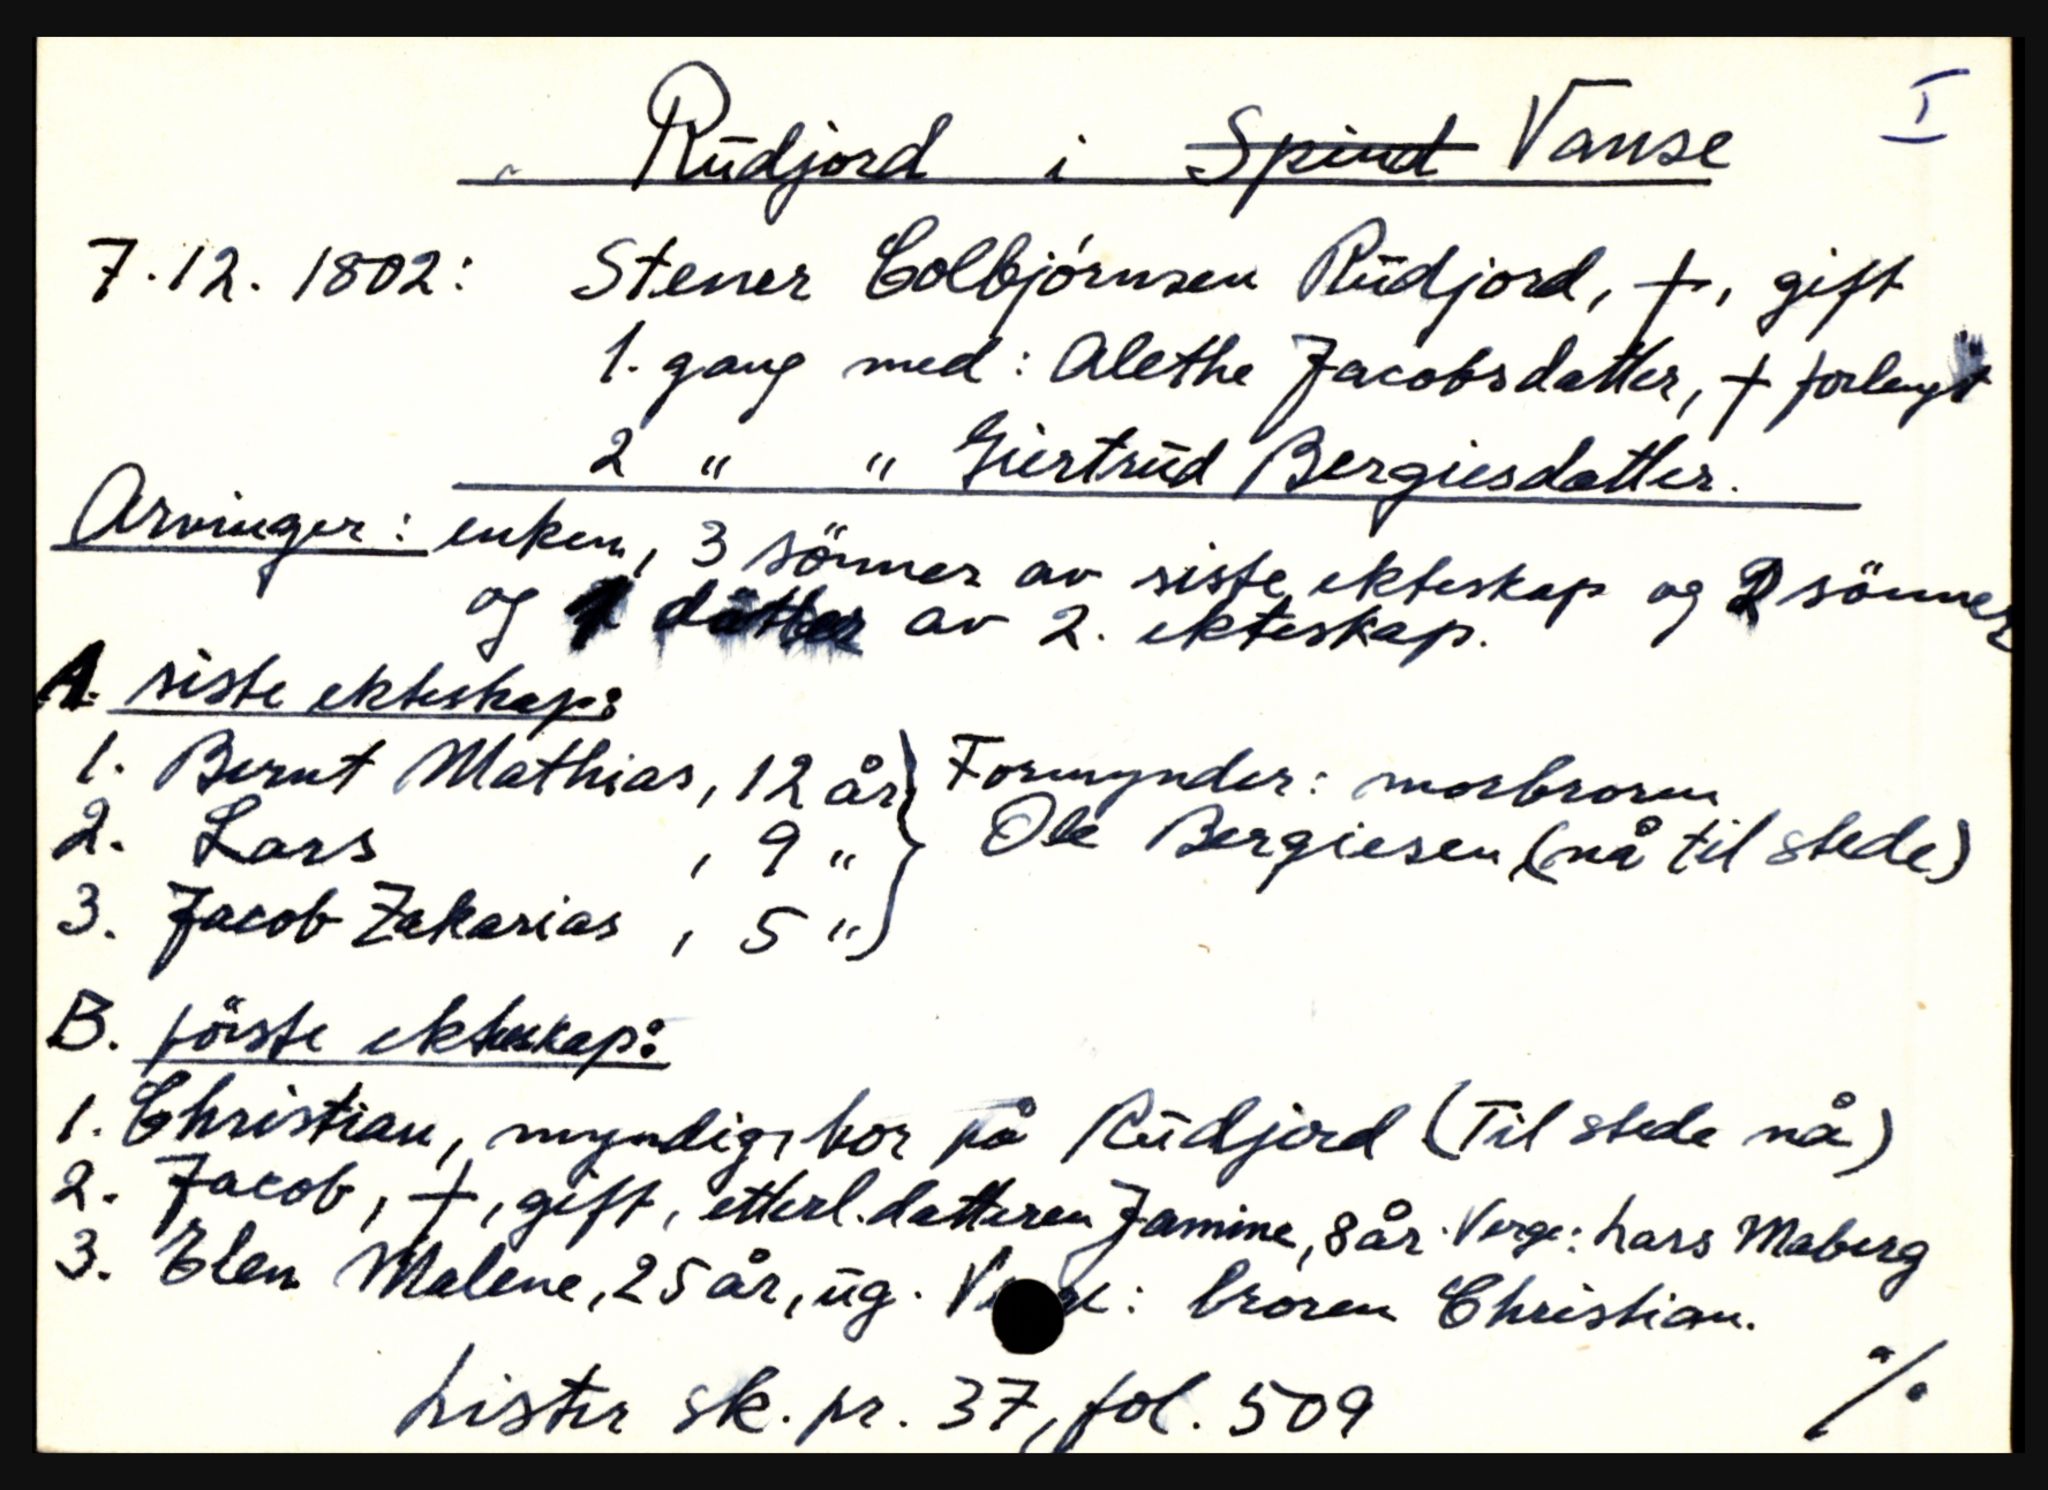 Rūdjord i Spind Vanse I
7.12.1802: Stener Colbjórnsen Rūdjord, †, gift
1. gang med: Alethe Jacobsdatter, † forlengst
2 " " Giertrūd Bergiesdatter.
Arvinger: enken, 3 sönner av siste ekteskap og 2 sönner
og 1 datter av 2. ekteskap.
A. siste ekteskap:
1. Bernt Mathias, 12 år } Formynder: morbroren
2. Lars , 9 " } Ole Bergiesen (nå til stede)
3. Jacob Zakarias , 5 " }
B. förste ekteskap:
1. Christian, myndig, bor på Rūdjord (Til stede nå)
2. Jacob, †, gift, etterl. datteren Jamine, 8 år. Verge: Lars Maberg
3. Elen Malene, 25 år, ūg. Verge: broren Christian.
Lister sk. pr. 37, fol. 509 ./.